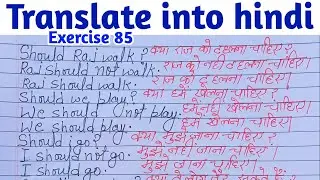 Translate into hindi
Exercise 85
Should Raj walk? क्या राज को टहलना चाहिए?
Raj should not walk. राज को नहीं टहलना चाहिए।
Raj should walk. राज को टहलना चाहिए।
Should we play? क्या हमें खेलना चाहिए?
We should not play. हमें नहीं खेलना चाहिए।
We should play. हमें खेलना चाहिए।
Should I go? क्या मुझे जाना चाहिए?
I should not go. मुझे नहीं जाना चाहिए।
I should go. मुझे जाना चाहिए।